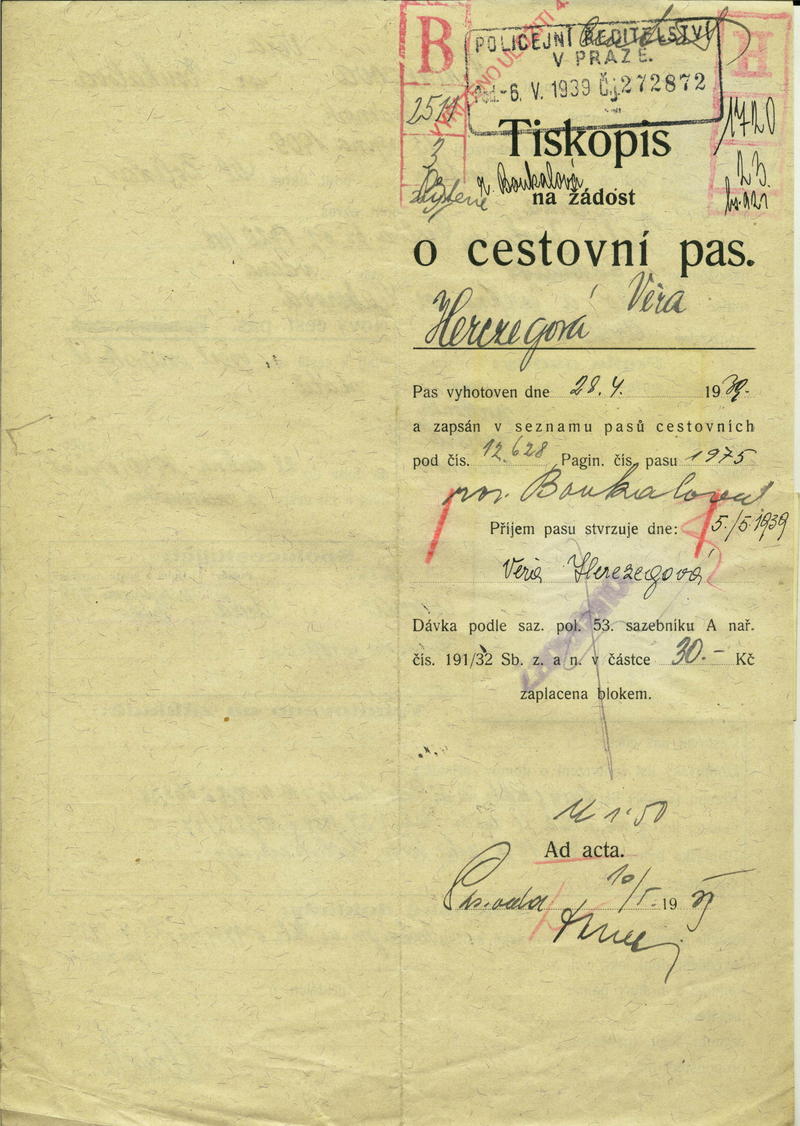 B
POLICEJNÍ ŘEDITELSTVÍ
V PRAZE.
-6. V. 1939 Čj. 272872
H
1720
Tiskopis
23.
r. Boukalová
na žádost
o cestovní pas.
Herczegová Věra
Pas vyhotoven dne 28. 4. 1939.
a zapsán v seznamu pasů cestovních
pod čís. 12.628 Pagin. čís. pasu 1975
roz. Boukalová
Příjem pasu stvrzuje dne: 5./5.1939
Věra Herczegová
Dávka podle saz. pol. 53. sazebníku A nař.
čís. 191/32 Sb. z. a n. v částce 30.- Kč
zaplacena blokem.
1·50
Ad acta.
10/5. 19 39